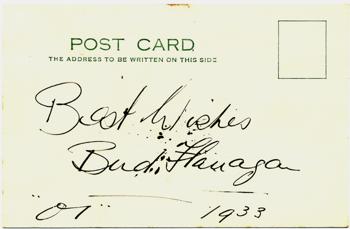 POST CARD
THE ADDRESS TO BE WRITTEN ON THIS SIDE
Best Wishes
Bud Flanagan
"OI" 1933